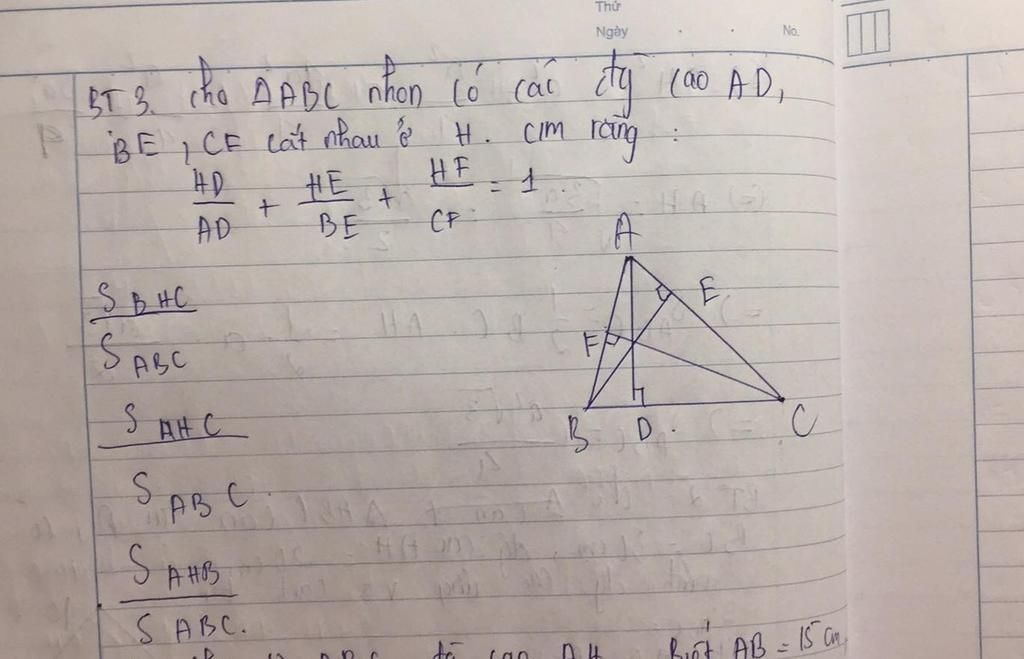 Thứ
Ngày
No.
BT 3. cho ΔABC nhọn có các đg cao AD,
BE, CF cắt nhau ở H. Cm rằng:
HD/AD + HE/BE + HF/CF = 1.
S BHC
S ABC
S AHC
S ABC.
S AHB
S ABC.
A
E
F
B
D.
C
AH
Biết AB = 15 cm